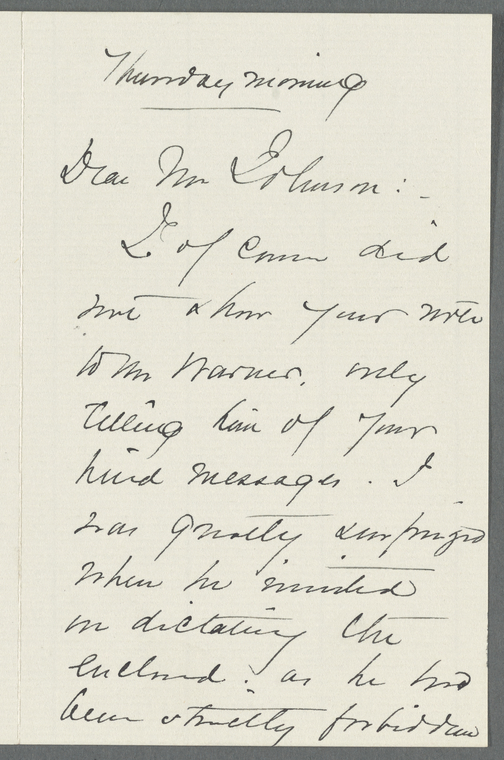 Thursday morning
Dear Mr Johnson:-
I of course did
not show your note
to Mr Warner, only
telling him of your
kind messages. I
was greatly surprized
when he insisted
on dictating the
enclosed: as he had
been strictly forbidden